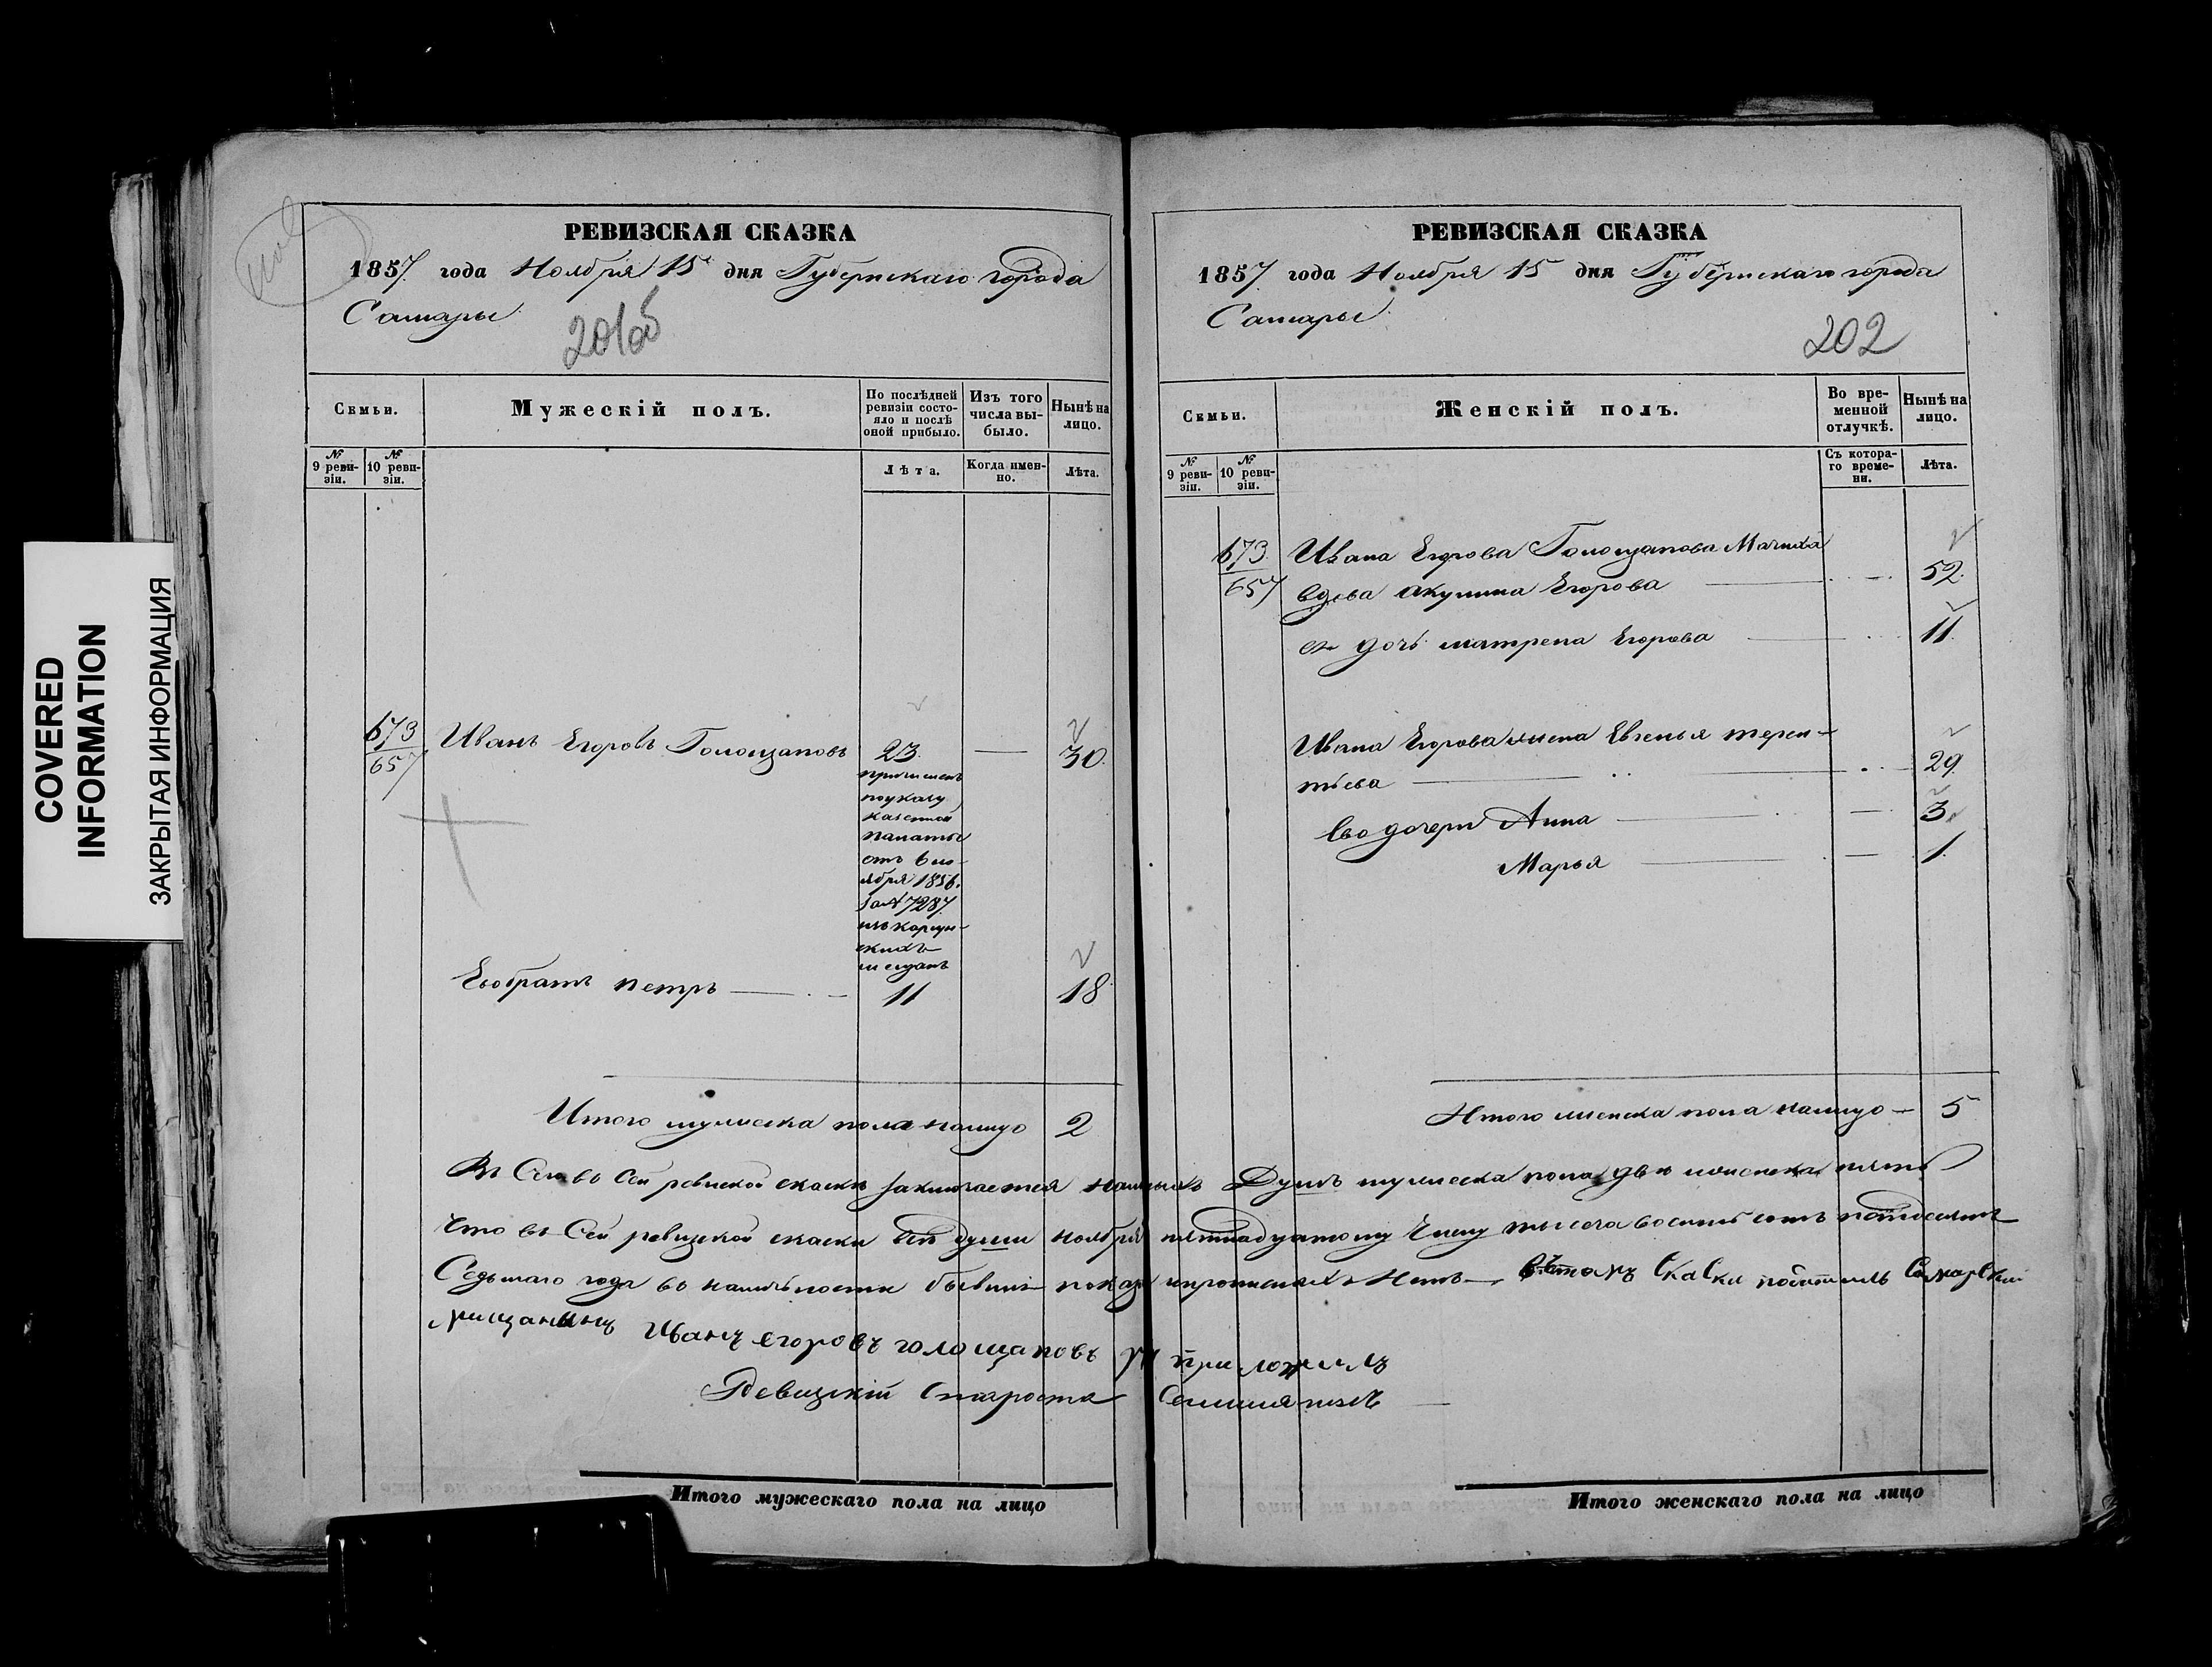 COVERED
INFORMATION
ЗАКРЫТАЯ ИНФОРМАЦИЯ
РЕВИЗСКАЯ СКАЗКА
1857 года Ноября 15 дня Губернскаго города
Самары
201об
Семьи.
Мужескій полъ.
По послѣдней
ревизіи состо-
яло и послѣ
оной прибыло.
Изъ того
числа вы-
было.
Нынѣ на
лицо.
№
9 реви-
зіи.
№
10 реви-
зіи.
Лѣта.
Когда имен-
но.
Лѣта.
673
657
Иванъ Егоровъ Голощаповъ 23. — 30.
причисленъ
по указу
казенной
палаты
отъ 6 но-
ября 1856.
за № 7287
изъ корсун-
скихъ
мещанъ
Егобратъ петръ — 11 18
Итого мужеска пола налицо 2
РЕВИЗСКАЯ СКАЗКА
1857 года Ноября 15 дня Губернскаго города
Самары
202
Семьи.
Женскій полъ.
Во вре-
менной
отлучкѣ.
Нынѣ на
лицо.
№
9 реви-
зіи.
№
10 реви-
зіи.
Съ котора-
го време-
ни.
Лѣта.
673
657
Ивана Егорова Голощапова Мачиха
вдова акулина Егорова — 52.
ея дочь матрена Егорова — 11.
Ивана Егорова жена Евгенья терен-
тьева — 29.
Ево дочери Анна — 3.
Марья — 1.
Итого женска пола налицо — 5
Въ Семъ Сей ревиской скаскѣ заключается наличныхъ Душъ мужеска пола двѣ женска пять
Что въ Сей ревизской скаски всѣ души ноября пятнадцатому Числу тысеча восемьсотъ пятьдесятъ
Седьмаго года въ наличности бывшіе показаны прописныхъ Нетъ — Вътомъ Скаски Самарскій
мищанинъ Иванъ егоровъ голощаповъ приложилъ
Ревизскій Староста
Итого мужескаго пола на лицо
Итого женскаго пола на лицо